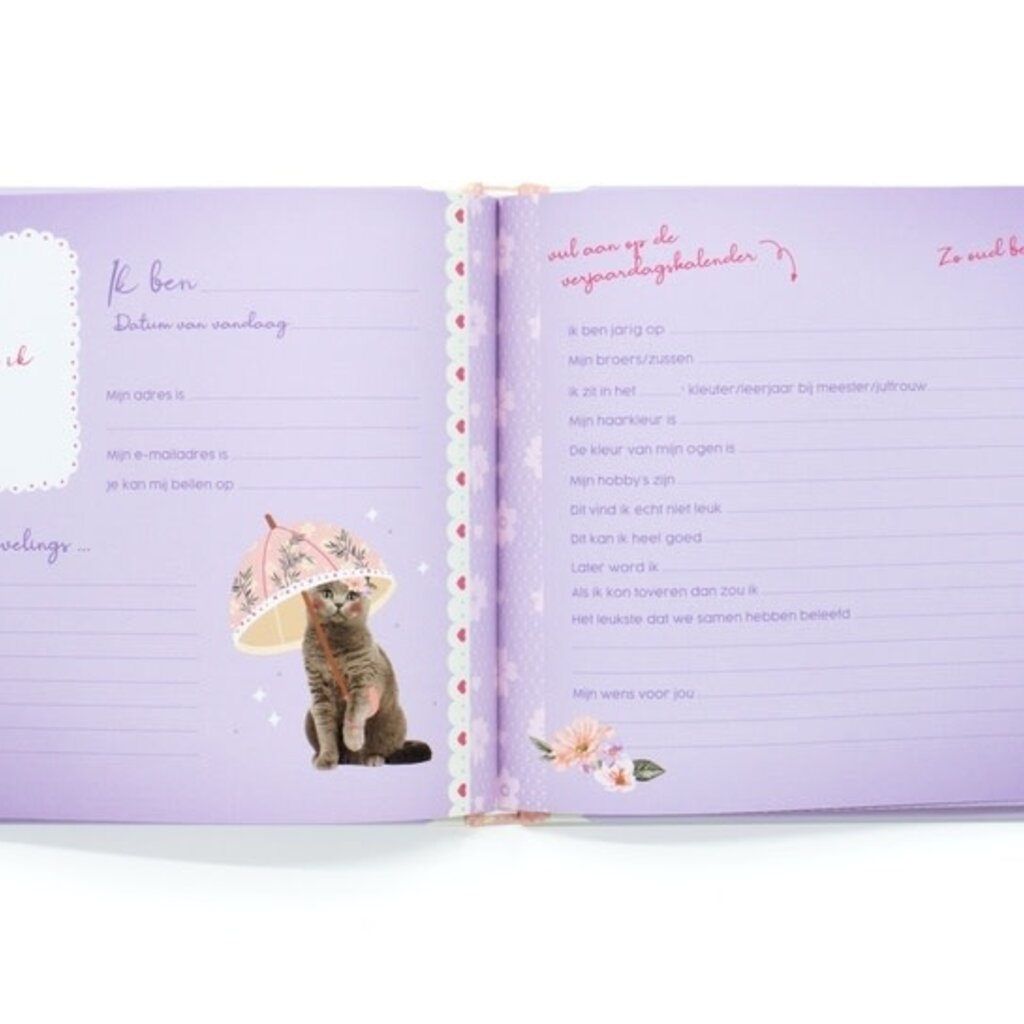 ik
Ik ben
Datum van vandaag
Mijn adres is
Mijn e-mailadres is
Je kan mij bellen op
velings ...
vul aan op de
verjaardagskalender
Zo oud be
Ik ben jarig op
Mijn broers/zussen
Ik zit in het ______ e kleuter/leerjaar bij meester/juffrouw
Mijn haarkleur is
De kleur van mijn ogen is
Mijn hobby's zijn
Dit vind ik echt niet leuk
Dit kan ik heel goed
Later word ik
Als ik kon toveren dan zou ik
Het leukste dat we samen hebben beleefd
Mijn wens voor jou